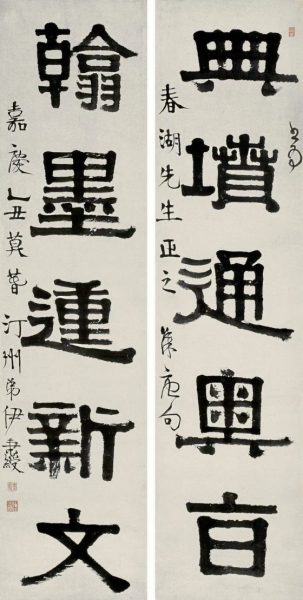 典墳通奧旨
春湖先生正之 集唐句
翰墨𨔝新文
嘉慶乙丑莫萅汀州弟伊秉綬